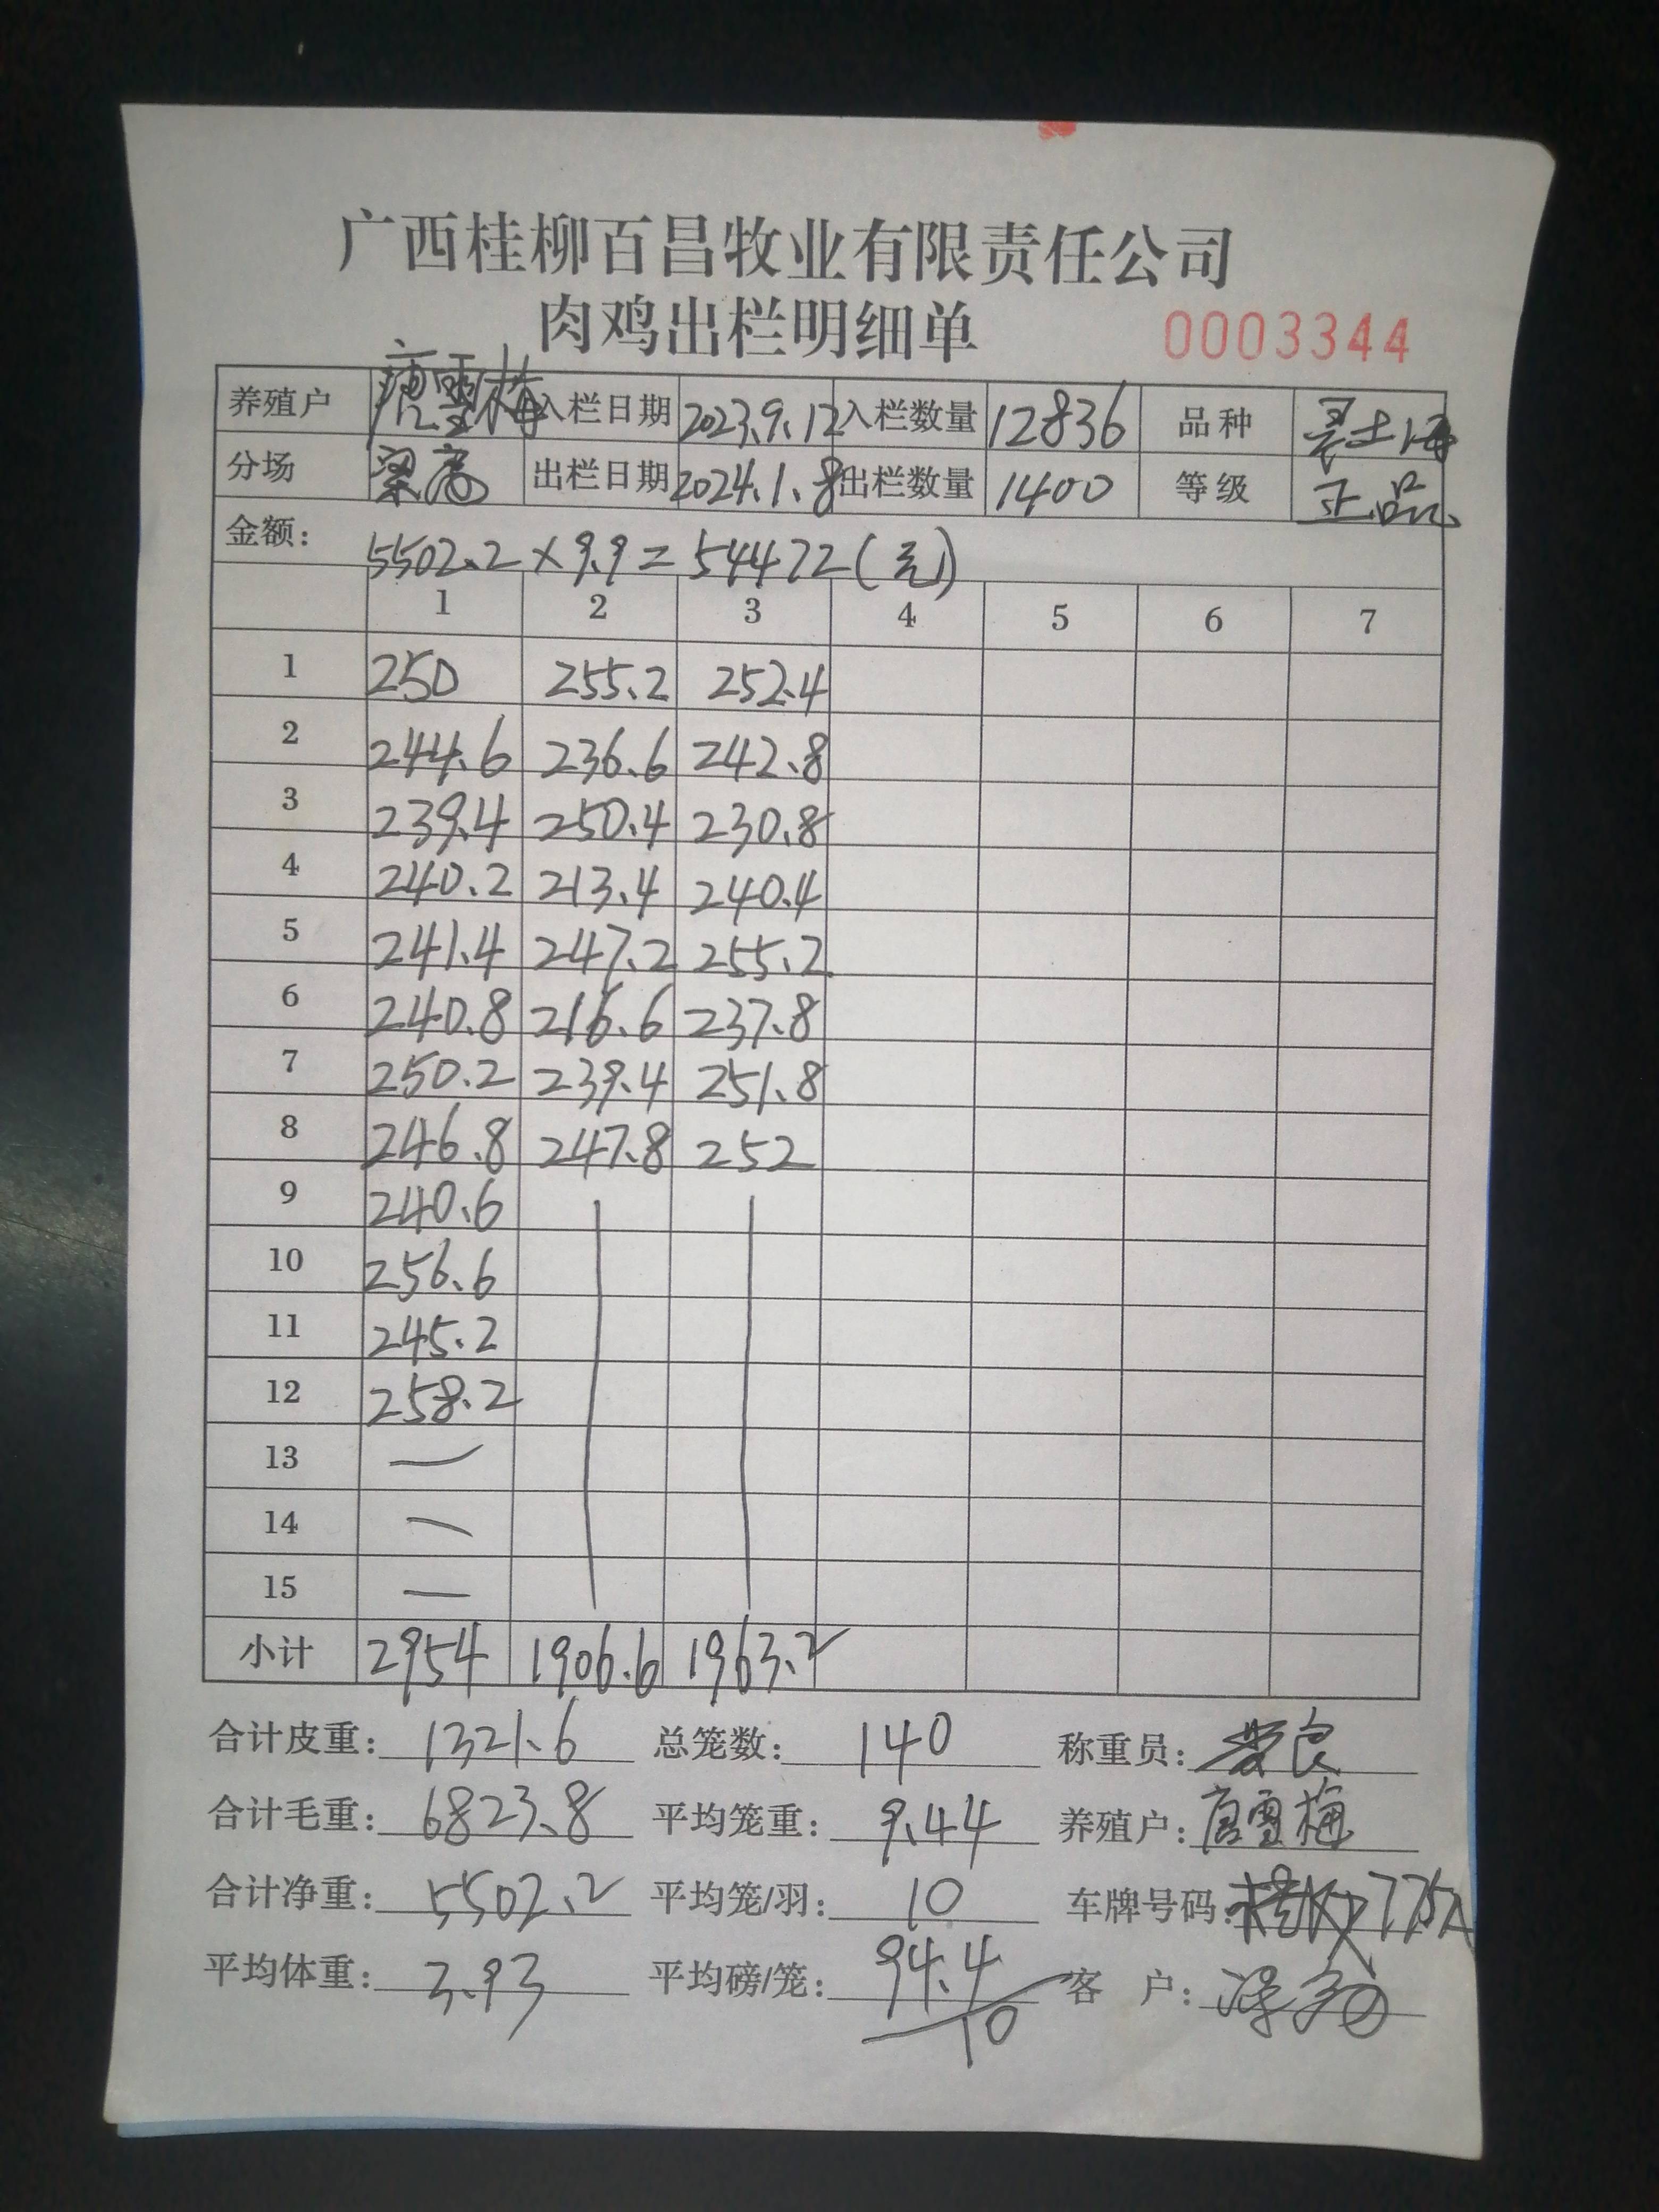 广西桂柳百昌牧业有限责任公司
肉鸡出栏明细单 0003344
养殖户 唐雪梅 入栏日期 2023.9.12 入栏数量 12836 品种 土
分场 梁高 出栏日期 2024.1.8 出栏数量 1400 等级 正品
金额: 5502.2×9.9=54472(元)
1 2 3 4 5 6 7
1 250 255.2 252.4
2 244.6 236.6 242.8
3 239.4 250.4 230.8
4 240.2 213.4 240.4
5 241.4 247.2 255.2
6 240.8 216.6 237.8
7 250.2 239.4 251.8
8 246.8 247.8 252
9 240.6
10 256.6
11 245.2
12 258.2
13 —
14 —
15 —
小计 2954 1906.6 1963.2
合计皮重: 1321.6 总笼数: 140 称重员:
合计毛重: 6823.8 平均笼重: 9.44 养殖户: 唐雪梅
合计净重: 5502.2 平均笼/羽: 10 车牌号码:
平均体重: 3.93 平均磅/笼: 94.4/10 客户: